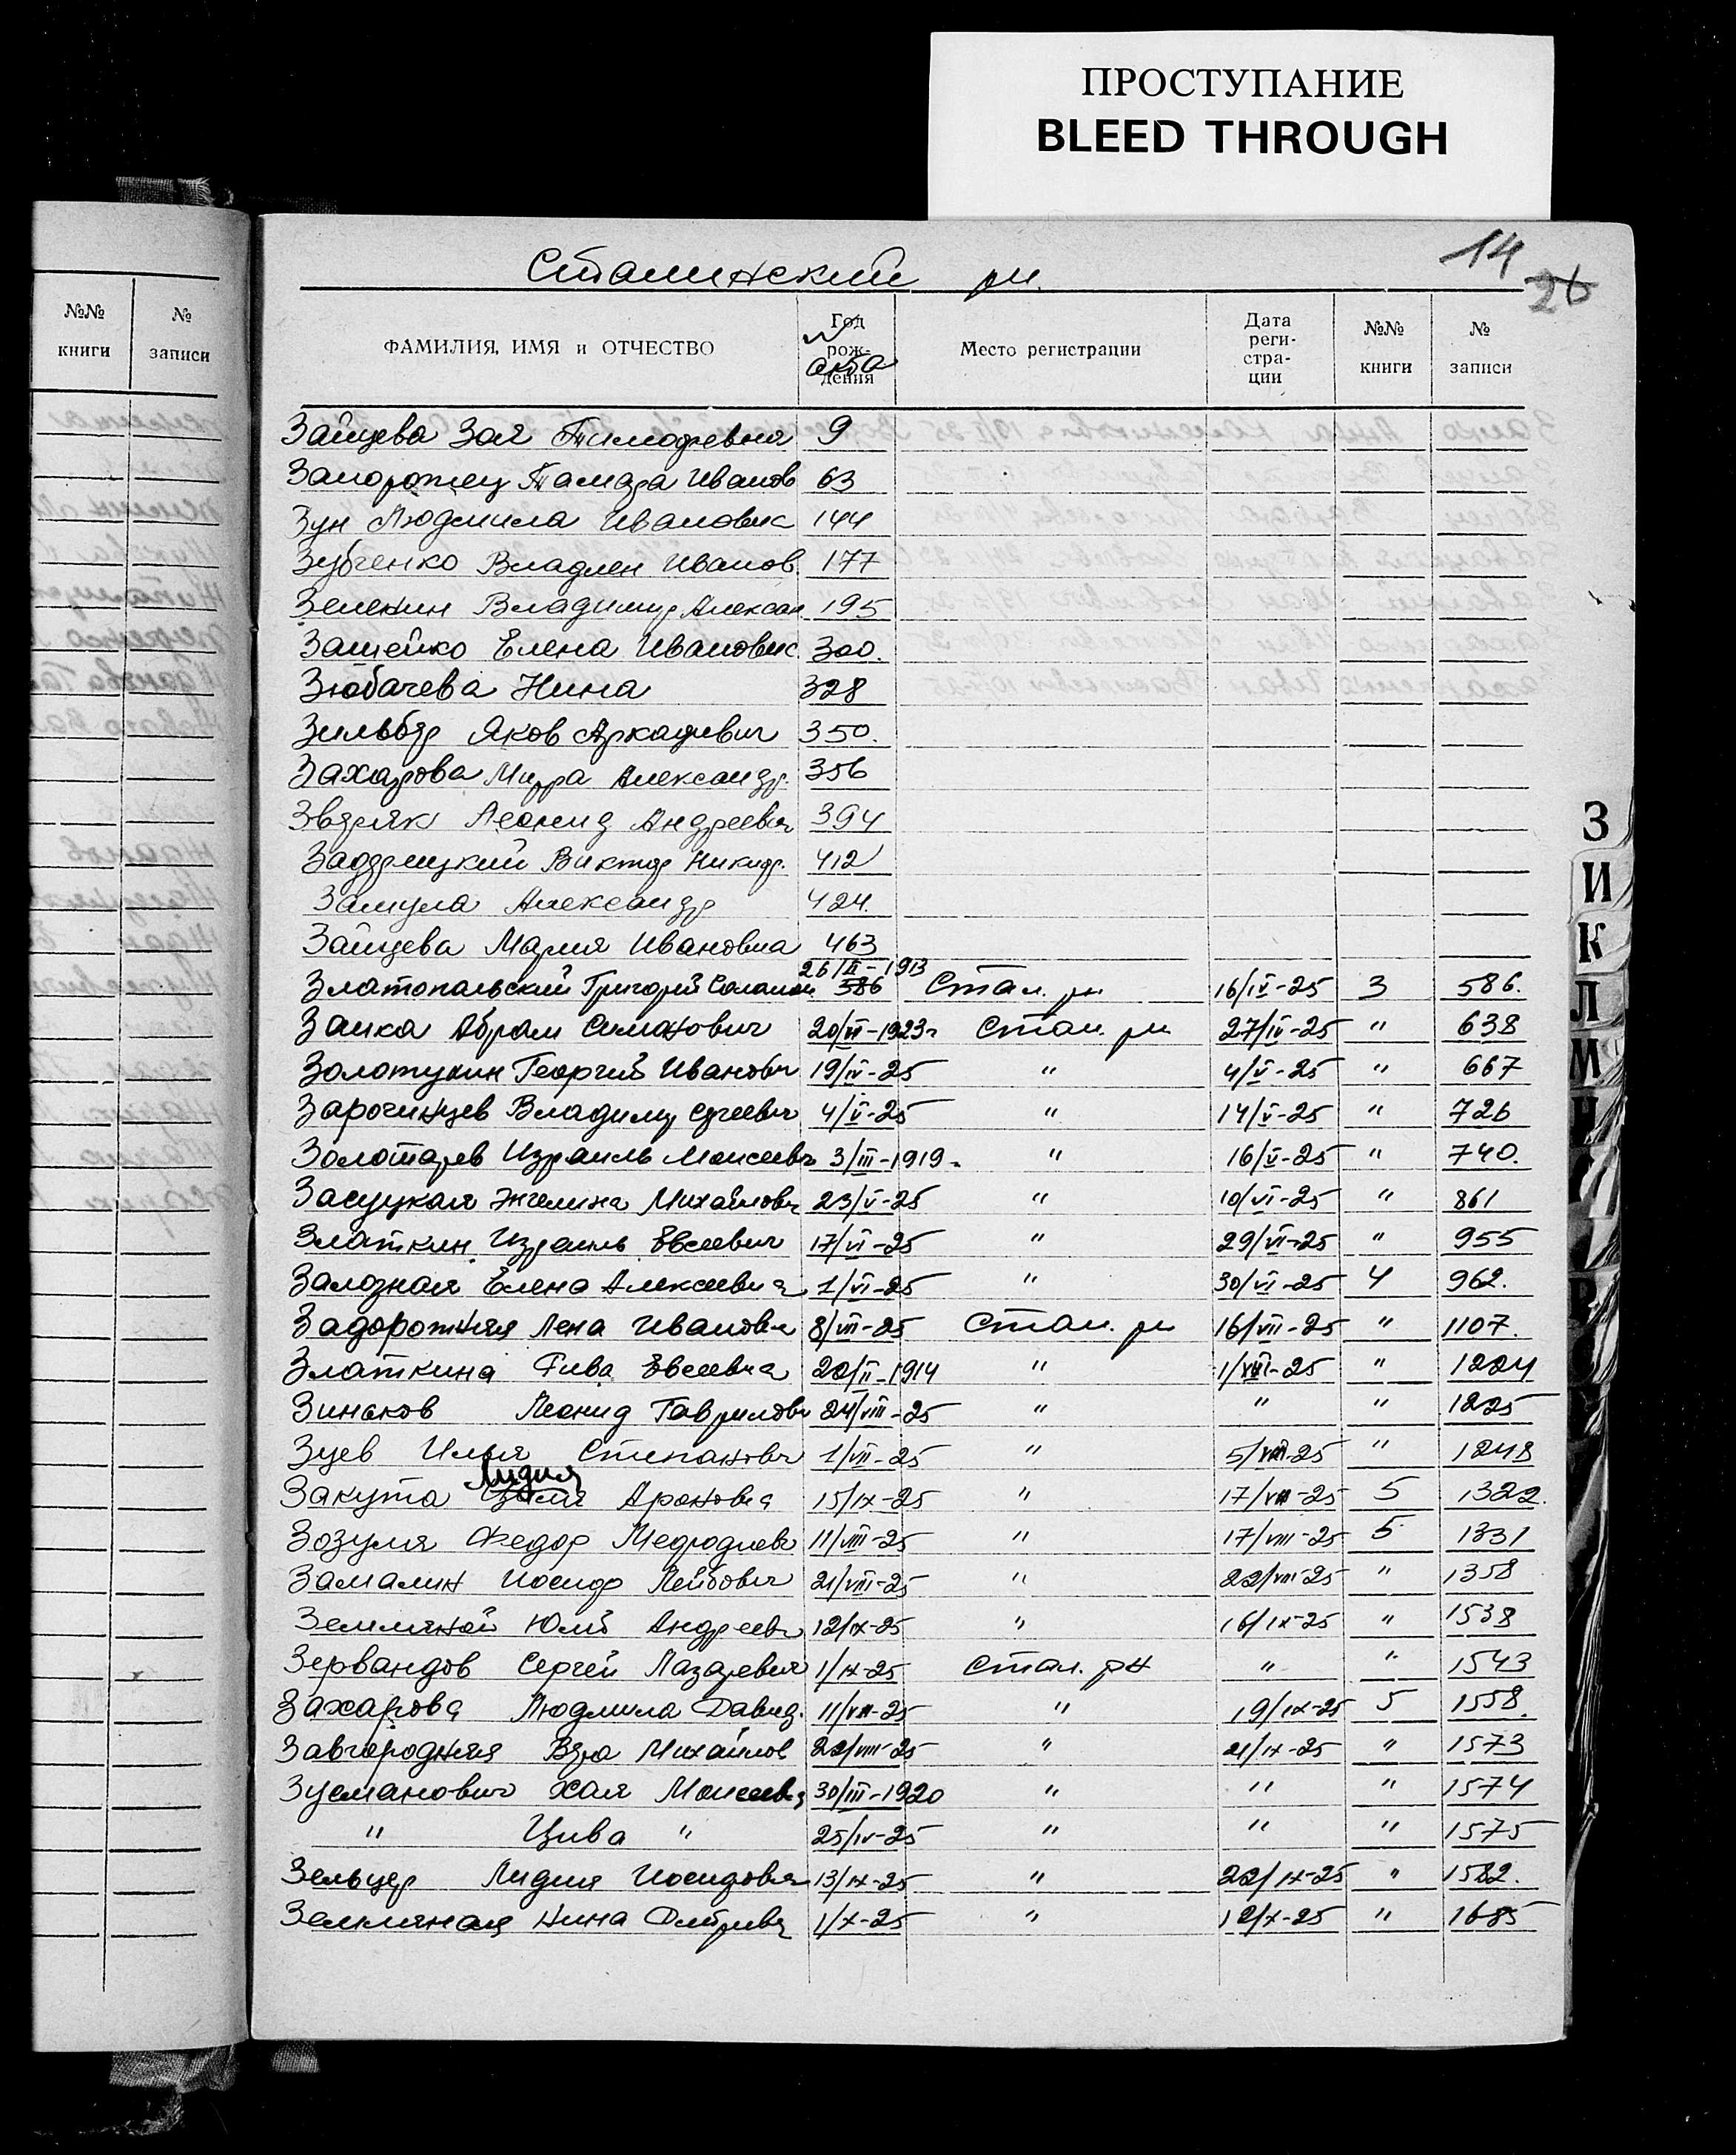 ПРОСТУПАНИЕ
BLEED THROUGH
14
26
Сталинский рн.
№№ книги № записи
ФАМИЛИЯ, ИМЯ и ОТЧЕСТВО Год рождения № акта Место регистрации Дата регистрации №№ книги № записи
Зайцева Зоя Тимофеевна 9
Запорожец Тамара Иванов 63
Зун Людмила Ивановна 144
Зубченко Владлен Иванов. 177
Зеленин Владимир Алексан 195
Зашейко Елена Ивановна 300.
Зюбачева Нина 328
Зильбер Яков Аркадиевич 350.
Захарова Мирра Александр. 356
Зверяк Леонид Андреевич 394
Задерецкий Виктор Никиф. 412
Замула Александр 424.
Зайцева Мария Ивановна 463
26/II-1913
Златопольский Григорий Соломон. 586 Стал. рн. 16/IV-25 3 586.
Заика Абрам Симонович 20/VI-1923г Стал. рн 27/IV-25 " 638
Золотухин Георгий Иванович 19/IV-25 " 4/V-25 " 667
Зарочинцев Владимир Сергеевич 4/V-25 " 14/V-25 " 726
Золотарев Израиль Моисеевич 3/III-1919. " 16/V-25 " 740.
Михайловн 23/V-25 " 10/VI-25 " 861
Златкин Израиль Евсеевич 17/VI-25 " 29/VI-25 " 955
Залозная Елена Алексеевна 1/VI-25 " 30/VI-25 4 962.
Задорожняя Лена Ивановн 8/VII-25 Стал. рн 16/VII-25 " 1107.
Златкина Рива Евсеевна 20/II-1914 " 1/VIII-25 " 1224
Зиньков Леонид Гаврилович 24/VIII-25 " " " 1225
Зуев Илья Степанович 1/VII-25 " 5/VIII-25 " 1248
Лидия
Закута Ароновна 15/IX-25 " 17/VIII-25 5 1322.
Зозуля Федор Мефодиевич 11/VIII-25 " 17/VIII-25 5 1331
Замалин Иосиф Лейбович 21/VIII-25 " 22/VIII-25 " 1358
Земляной Юлий Андреевич 12/IX-25 " 16/IX-25 " 1538
Зервандов Сергей Лазаревич 1/IX-25 Стал. рн " " 1543
Захарова Людмила Давид. 11/VII-25 " 19/IX-25 5 1558.
Завгородняя Вера Михайлов 22/VIII-25 " 21/IX-25 " 1573
Зусманович Хая Моисеевна 30/III-1920 " " " 1574
" Цива " 25/IV-25 " " " 1575
Зельцер Лидия Иосифовна 13/IX-25 " 22/IX-25 " 1582.
Земляная Нина Дмитриевн 1/X-25 " 12/X-25 " 1685
З
И
К
Л
М
Н